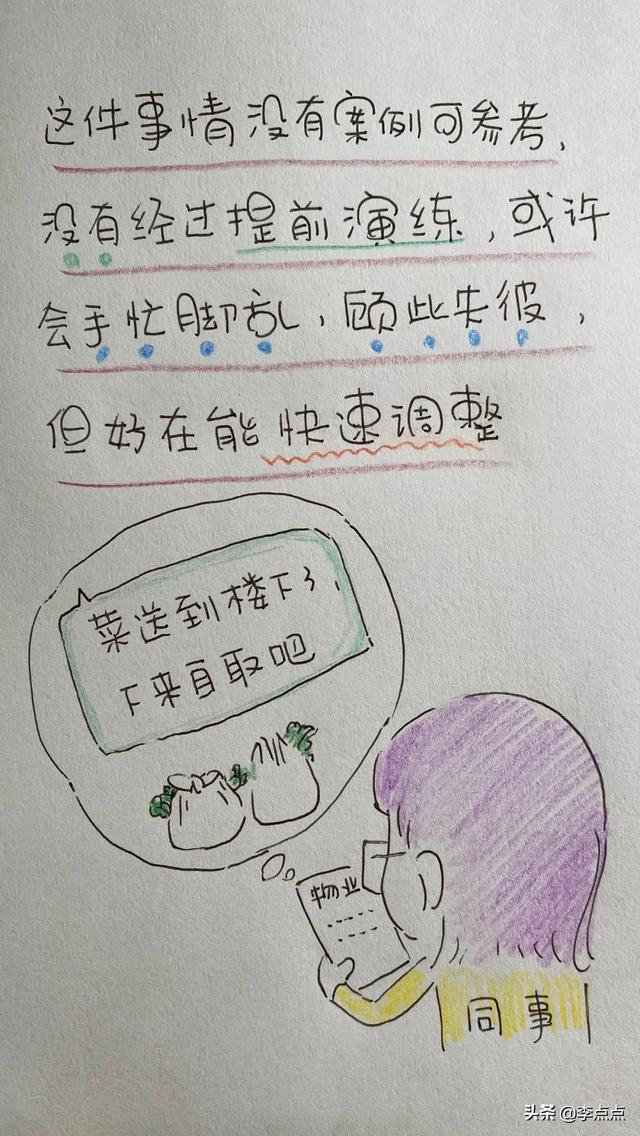 这件事情没有案例可参考，
没有经过提前演练，或许
会手忙脚乱，顾此失彼，
但好在能快速调整
菜送到楼下了，
下来自取吧
物业
同事
头条 @李点点